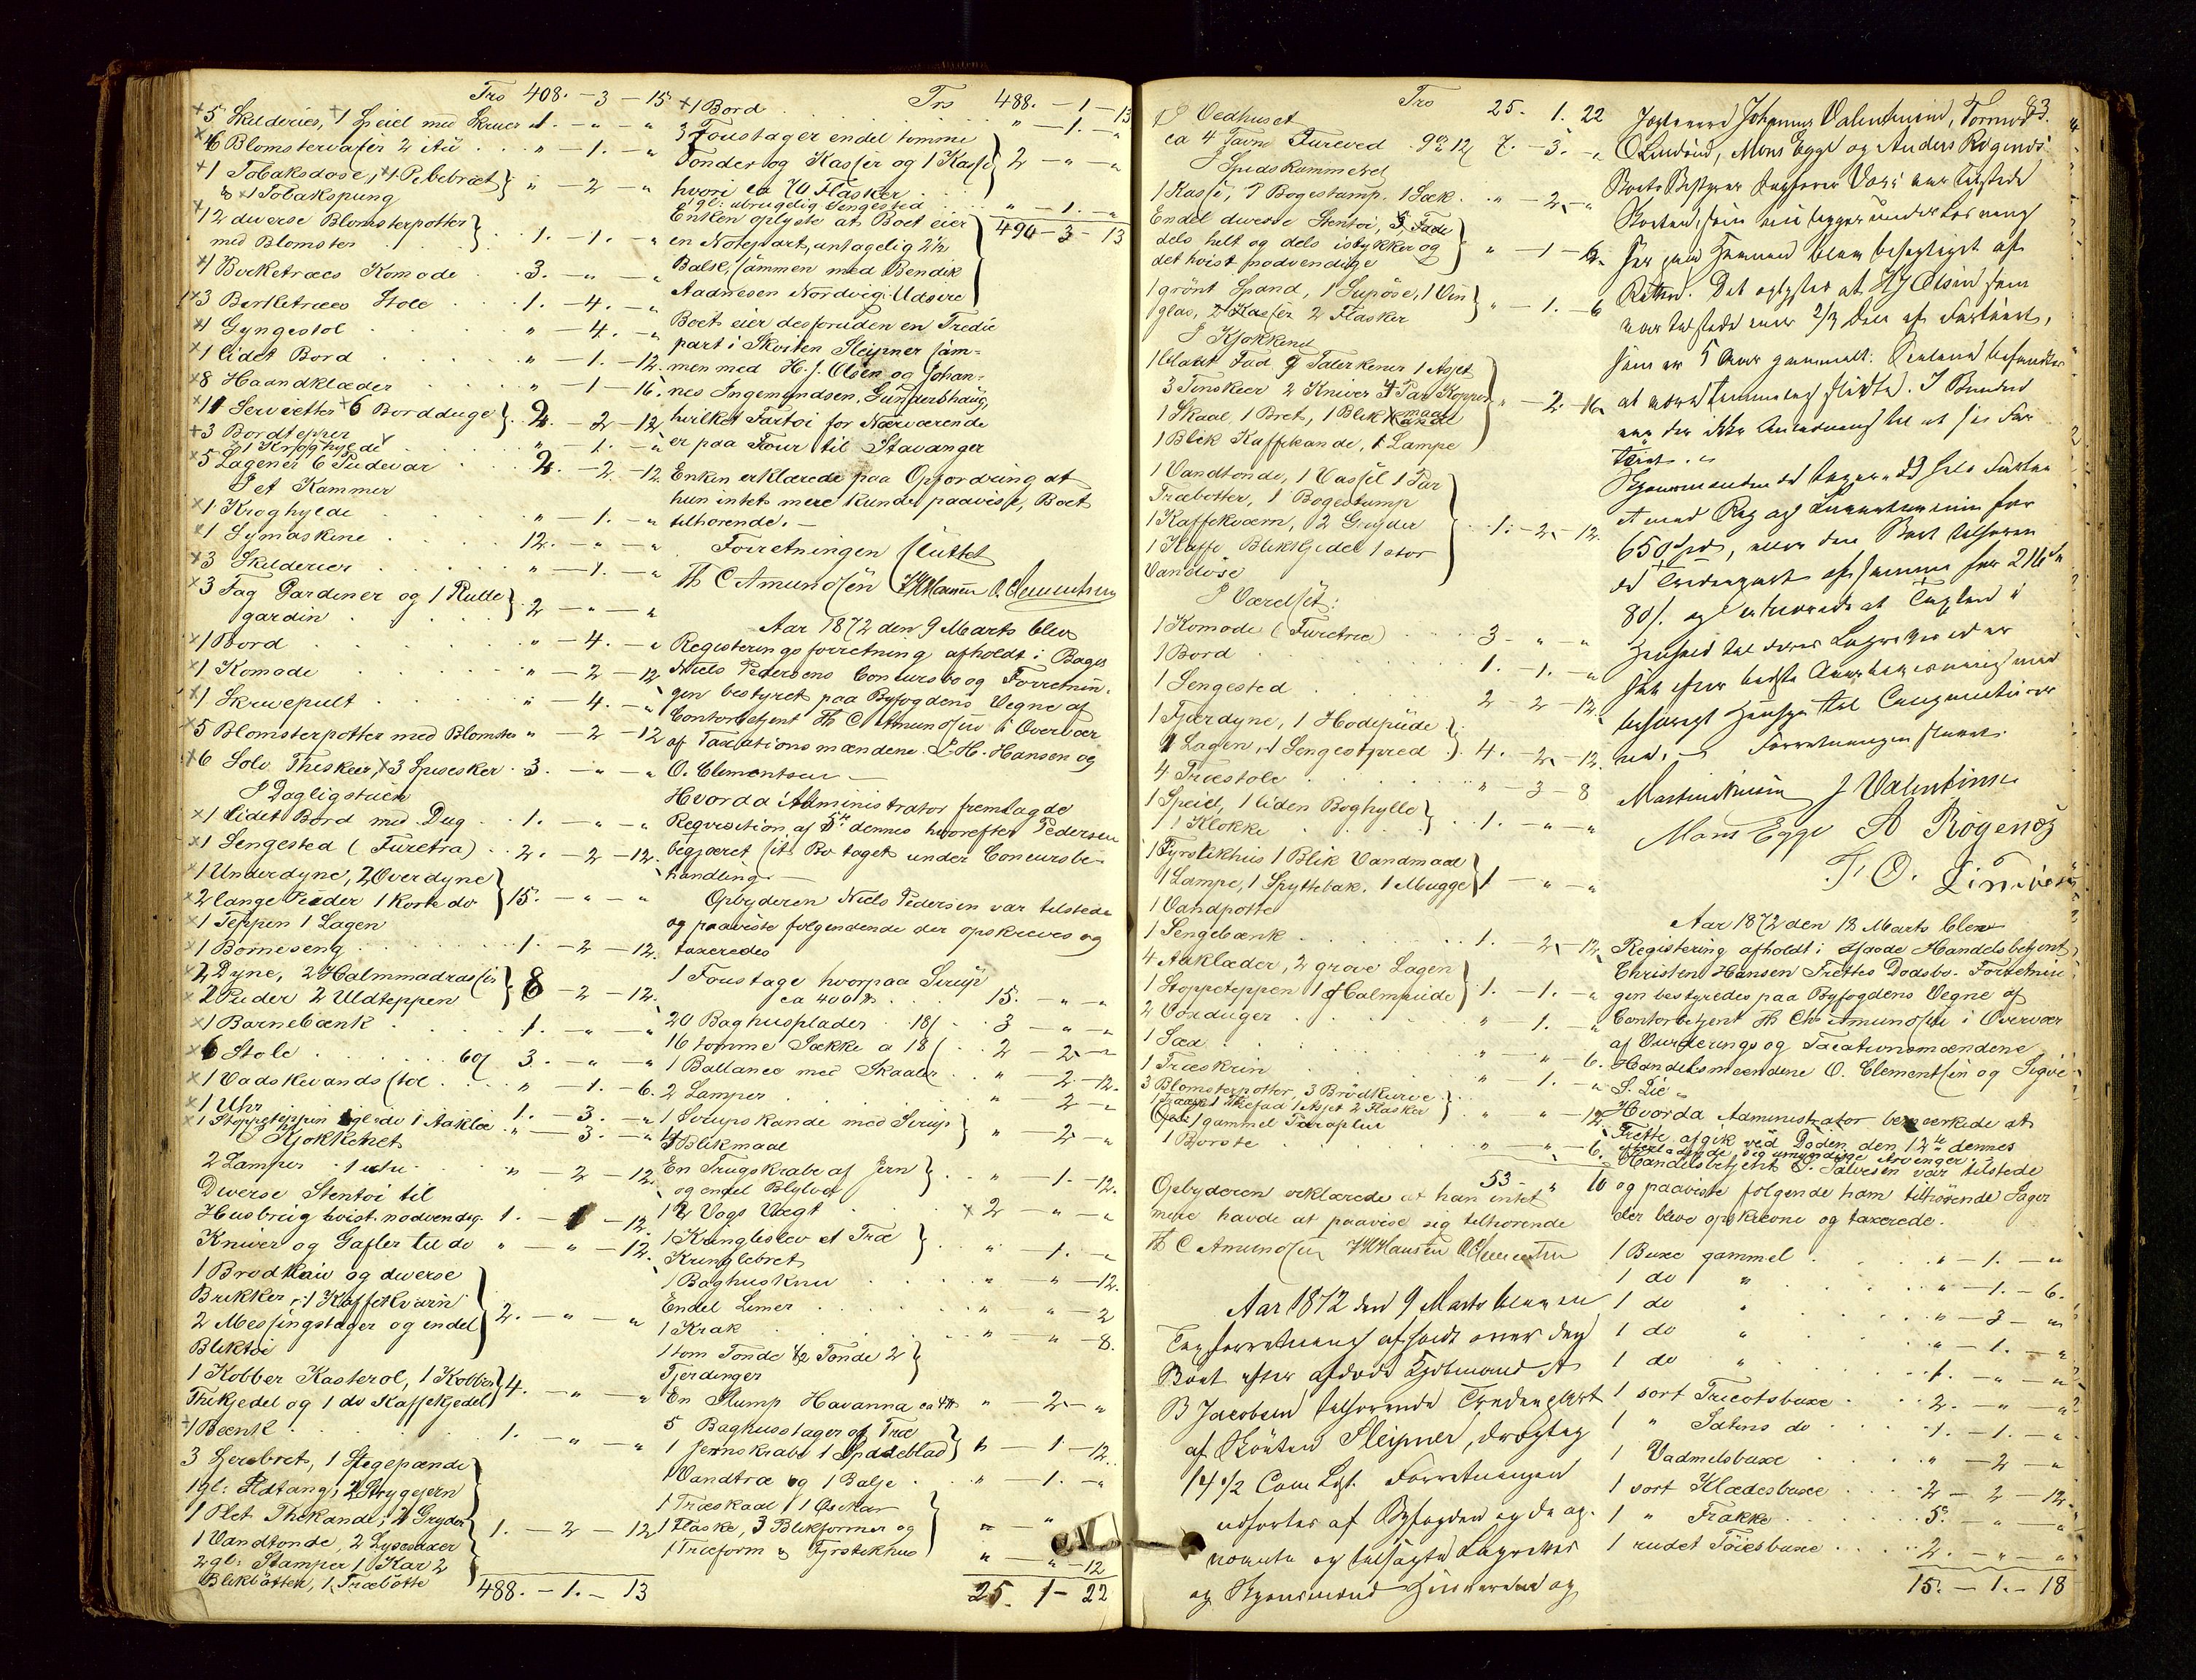 Trs 408. - 3 - 15
+5 Skilderier, +1 Speiel med Skruer 1. - " - "
+6 Blomstervaser 2 Au . . " - 1. - "
+1 Tobaksdose, +1 Pibebræt
& +1 Tobakspung } " - 2 - "
+12 diverse Blomsterpotter
med Blomster } . . 1. - 1. - "
+1 Birketræes Komode . . 3. - " - "
+3 Birketræes Stole . . . 1. - 4. - "
+1 Gyngestol . . . . " - 4. - "
+1 lidet Bord . . . . " - 1. - 12.
+8 Haandklæder . . . " - 1 - 16.
+11 Servietter +6 Bordduge } 2. - 2 - 12
+3 Bordtepper
1 Kroghylde " - 1. - "
+5 Lagener 6 Pudevar . . 2. - 2 - 12
I et Kammer
+1 Kroghylde . . . . " - 1. - "
+1 Symaskine . . . . 12. - " - "
+3 Skilderier . . . . " - 1. - "
+3 Fag Gardiner og 1 Rulle
gardin . . . . } 2 - " - "
+1 Bord . . . . " - 4. - "
+1 Komode . . . . " - 2 - 12
+1 Skruepult . . . . " - 4. - "
+5 Blomsterpotter med Blomster " - 2 - 12
+6 Sølv Theskeer, +3 Spiseskeer . 3. - " - "
I Dagligstuen
+1 lidet Bord med Dug . . 1. - " - "
+1 Sengested (Furetræ) . . 2. - 2 - 12.
+1 Underdyne, 2 Overdyne
+2 lange Puder 1 korte do } 15. - " - "
+1 Teppen 1 Lagen
+1 Børneseng . . . . 1. - 2 - 12.
+2 Dyne, 2 Halmmadrasser
+2 Puder 2 Uldteppen } 8 - 2 - 12.
+1 Barnebænk . . . . 1. - " - "
+6 Stole . . . . 60/ 3. - " - "
+1 Vadskevandsstol . . . " - 1. - 6.
+1 Uhr 1. - 3. - "
+1 Stoppeteppen 1 Aaklæ . " - 3. - "
I Kjøkkenet
2 Lamper 1 itu . . " - 2 - 12.
Diverse Stentøi til
Husbrug høist nødvendig. 1. - 1 - 12.
Kniver og Gafler til do " - " - 12.
1 Brødkniv og diverse
Brikker, 1 Kaffekværn
2 Messingstager og endel } 2. - " - "
Bliktøi
1 Kobber Kasterol, 1 Kobber
Thekjedel og 1 do Kaffekjedel } 4. - " - "
+1 Bænk . . . . 1. - " - "
3 Skjerebret, 1 Stegepande
1 gl: Ildtang, 2 Strygejern
1 Plet Thekande, 2 Gryder
1 Vandtønde, 2 Lysesaxer } 1. - 2 - 12
2 gl: Stamper 1 Kar 2
Blikbøtter, 1 Træbøtte
488. - 1. - 13
Trs 488. - 1 - 13
+1 Bord . . . . " - 1. - "
3 Foustager endel tomme
Tønder og Kasser og 1 Kasse } 2 - " - "
hvori ca 70 Flasker
1 gl: ubrugelig Sengested . . " - 1. - "
Enken oplyste at Boet eier 490 - 3 - 13
en Notepart, antagelig 2½
Balse, sammen med Bendik
Aadnesen Nordvig: Udsire
Boet eier desforuden en Tredie
part i Skøiten Sleipner sam-
men med H. J. Olsen og Johan-
nes Ingemundsen, Gundershaug,
hvilket Fartøi for Nærværende
er paa Tour til Stavanger
Enken erklærede paa Opfordring at
hun intet mere kunde paavise, Boet
tilhørende. -
Forretningen sluttet
Th C Amundsen J H Hansen O. Clementsen
Aar 1872 den 9 Marts blev
Registerings forretning afholdt i Bager
Niels Pedersens Concursbo og Forretnin-
gen bestyret paa Byfogdens Vegne af
Contorbetjent Th C Amundsen i Overvær
af Taxationsmændene J. H. Hansen og
O. Clementsen -
Hvorda Administrator fremlagde
Reqvisition af 5te dennes hvorefter Pedersen
begjæret sit Bo taget under Concursbe-
handling. -
Opbyderen Niels Pedersen var tilstede
og paaviste følgendende der opskreves og
taxeredes
1 Foustage hvorpaa Sirup
ca 400 ℔ . . . 15. - " - "
20 Baghusplader . 18/ . . 3 - " - "
16 tomme Sække a 18/ . . 2 - 2 - "
1 Ballance med Skaaler . . " - 2 - 12.
2 Lamper . . . . " - 2 - "
1 Sirupskande med Sirup
4 Blikmaal } " - 2 - "
En Trugskrabe af Jern
og endel Blylod } . . " - 1. - 12.
1 2 Vogs Vægt . . . + 2 - " - "
1 Kringlelev et Træ
Kringlebret } . . " - 1. - "
1 Baghuskniv . . . " - " - 12.
Endel Limer . . . " - " - 2
1 Krak . . . . " - " - 8.
1 tom Tønde ½ Tønde 2
Fjerdinger }
En Slump Havanna ca 4 ℔ " - 2 - "
5 Baghusstager af Træ
1 Jernskrabe 1 Spadeblad } " - 1 - 12.
1 Vandtræ og 1 Balje . . " - 1. - "
1 Træskaal 1 Øsekar
1 Flaske, 3 Blikformer og } " - " -
1 Træform & Fyrstikhus " - " - 12
25. 1 - 22
Trs 25. 1. 22
I Vedhuset
ca 4 Favn Fureved . 9 12/ 7. - 3. - "
I Spidskammeret
1 Kasse, 7 Bogestump. 1 Sæk. . " - 2 - "
Endel diverse Stentøi, 5 Fade
dels helt og dels istykker og } " - 1 - 6.
det høist nødvendige
1 grønt Spand, 1 Supøse, 1 Vin
glas, 2 Karafler 2 Flasker } " - 1. - 6
I Kjøkkenet
1 blaat Fad 7 Talerkener 1 Asjet
3 Tinskeer 2 Kniver 4 Par Kopper
1 Skaal, 1 Bret, 1 Blikmaal } " - 2 - 16
1 Blik Kaffekande, 1 Lampe
1 Vandtønde, 1 Vassel 1 Par
Træbøtter, 1 Bogestump
1 Kaffekværn, 2 Gryder } 1. - 2 - 12.
1 Kaffe Blikkjedel 1 stor
Vandøse
I Værelset:
1 Komode (Furetræ) . . 3 - " - "
1 Bord . . . . 1. - 1. - "
1 Sengested . . . 2 - 2 - 12.
1 Fjærdyne, 1 Hodepude
1 Lagen, 1 Sengespred } . 4. - 2 - 12.
4 Træstole . . . . " - 3 - 8
1 Speiel, 1 liden Boghylle
1 Klokke } . . 1. - " - "
1 Fyrstikhus 1 Blik Vandmaal
1 Lampe, 1 Spyttebak. 1 Mugge } 1 - " - "
1 Vandpotte
1 Sengebænk . . . 1. - 2 - 12
4 Aaklæder, 2 grove Lagen
1 Stoppeteppen 1 Halmpude } 1. - 1. - "
2 Voxduger . . . . " 1. - "
1 Sax . . . . " - " - 6.
1 Træskrin . . . . " - 1. - "
3 Blomsterpotter, 3 Brødkurve
1 Thefad 1 Asjet 2 Flasker } " - " - 12
1 gammel Paraplui
1 Børste . . . . " - " - 6.
53 - " 10
Opbyderen erklærede at han intet
mere havde at paavise sig tilhørende
Th C Amundsen J H Hansen O Clementsen
Aar 1872 den 9 Marts blev en
Taxforretning afholdt over den
Boet efter afdøde Kjøbmand A
B Jacobsen tilhørende Tredepart
af Skøiten Sleipner, drægtig
14 1/2 Com Lst. Forretningen
udførtes af Byfogden og de op-
nævnte og tilsagte Lagrettes
og Skjønsmænd
83.
Johannes Valentinsen, Tormod
O Lindøen, Mons Egge og Anders Røgenes
Boets Bestyrer var tilstede
Skøiten, som nu ligger under Losning
her ved Havnen blev besigtiget af
Retten. Det oplystes at H J Olsen som
var tilstede eier 2/3 Dele af Fartøiet,
som er 5 Aar gammelt. Seilene befandtes
at være temmelig slidte. I Bunden
var der ikke Anledning til at se Far
tøiet.
Skjønsmændene taxerede hele Fartøi
et med Rig og Inventarium for
650 Spd, eller den Boet tilhøren
de Tredepart af samme for 216 Spd
80/. og erklærede at Taxten i
Henhold til deres Lagrettes ed er
sat efter bedste Overbevisning med
behørigt Hensyn til Conjuncturer
ne. - Forretningen sluttet.
J Valentinsen
Mons Egge A Røgenes
T. O. Lindøen
Aar 1872 den 18 Marts blev
Registering afholdt i afdøde Handelsbetjent
Christen Hansen Frettes Dødsbo. Forretnin
gen bestyredes paa Byfogdens Vegne af
Contorbetjent Th Chr Amundsen i Overvær
af Vurderings og Taxationsmændene
Handelsmændene O. Clementsen og Sigve
S. Lie "
Hvorda Administrator bemærkede at
Frette afgik ved Døden den 12te dennes
efterladende sig umyndige Arvinger. -
Handelsbetjent S. Salvesen var tilstede
og paaviste følgende ham tilhørende Sager
der bleve opskrevne og taxerede.
1 Buxe gammel . . . " - 1. - "
1 do " . . . " - 1. - 6.
1 do " . . . " - 3 - "
1 do " . . . " - 1. - "
1 do " . . . 1. - " - "
1 sort Tricotsbuxe . . 2. - " - "
1 " Satens do . . 1. - 1. - "
1 Vadmelsbuxe . . . " - 2 - "
1 sort Klædesbuxe . . 2 - 2 - 12.
1 " Frakke . . . 5. - " - "
1 rudet Tøiesbuxe . . 2. - " - "
15. - 1. - 18